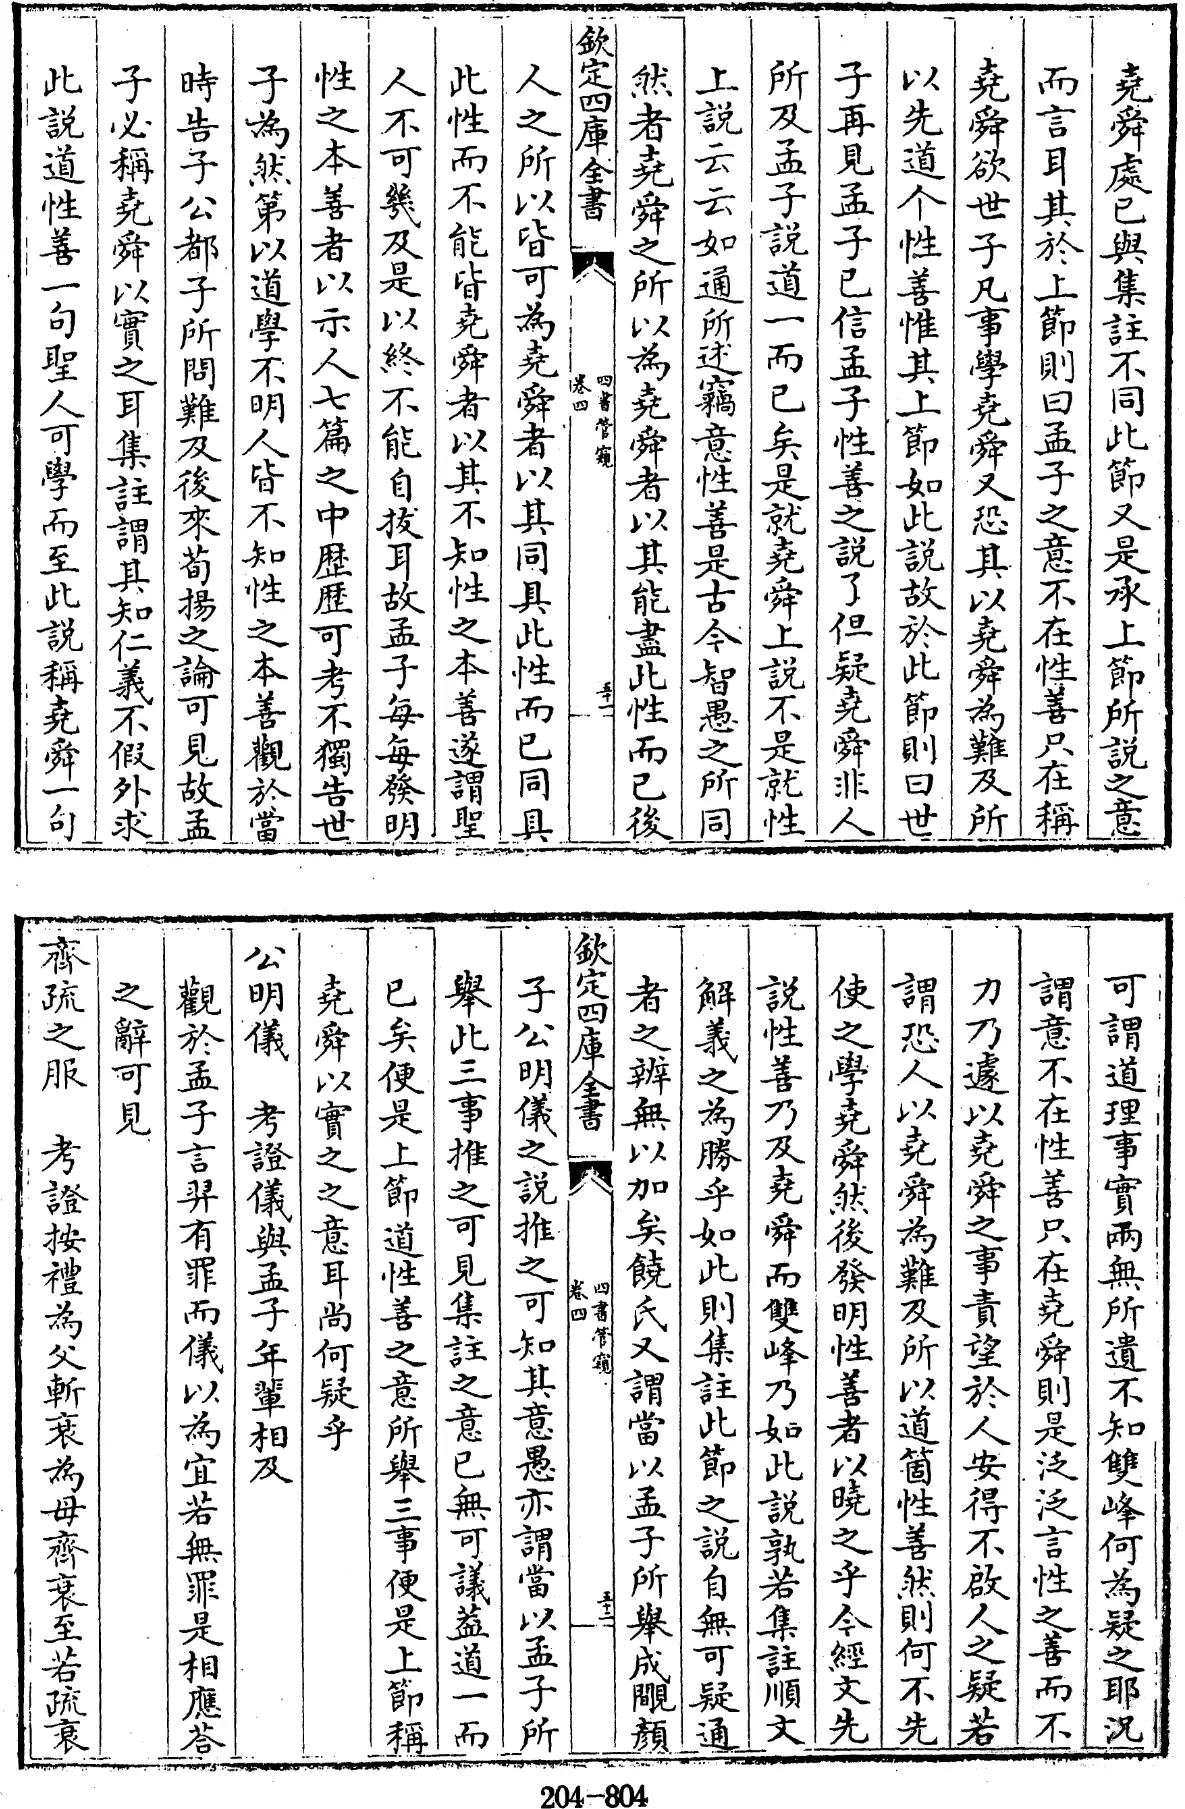 堯舜處已與集註不同此節又是承上節所説之意
而言耳其於上節則曰孟子之意不在性善只在稱
堯舜欲世子凡事學堯舜又恐其以堯舜為難及所
以先道个性善惟其上節如此説故於此節則曰世
子再見孟子已信孟子性善之説了但疑堯舜非人
所及孟子説道一而已矣是就堯舜上説不是就性
上説云云如通所述竊意性善是古今智愚之所同
然者堯舜之所以為堯舜者以其能盡此性而已後
欽定四庫全書
四書管窺
卷四
五十一
人之所以皆可為堯舜者以其同具此性而已同具
此性而不能皆堯舜者以其不知性之本善遂謂聖
人不可幾及是以終不能自拔耳故孟子每每發明
性之本善者以示人七篇之中歴歴可考不獨告世
子為然第以道學不明人皆不知性之本善觀於當
時告子公都子所問難及後來荀揚之論可見故孟
子必稱堯舜以實之耳集註謂其知仁義不假外求
此説道性善一句聖人可學而至此説稱堯舜一句
可謂道理事實兩無所遺不知雙峰何為疑之耶況
謂意不在性善只在堯舜則是泛泛言性之善而不
力乃遽以堯舜之事責望於人安得不啟人之疑若
謂恐人以堯舜為難及所以道箇性善然則何不先
使之學堯舜然後發明性善者以曉之乎今經文先
説性善乃及堯舜而雙峰乃如此説孰若集註順文
解義之為勝乎如此則集註此節之説自無可疑通
者之辨無以加矣饒氏又謂當以孟子所舉成覵顔
欽定四庫全書
四書管窺
卷四
五十二
子公明儀之説推之可知其意愚亦謂當以孟子所
舉此三事推之可見集註之意已無可議葢道一而
已矣便是上節道性善之意所舉三事便是上節稱
堯舜以實之之意耳尚何疑乎
公明儀　考證儀與孟子年輩相及
觀於孟子言羿有罪而儀以為宜若無罪是相應荅
之辭可見
齊疏之服　考證按禮為父斬衰為母齊衰至若疏衰
204-804